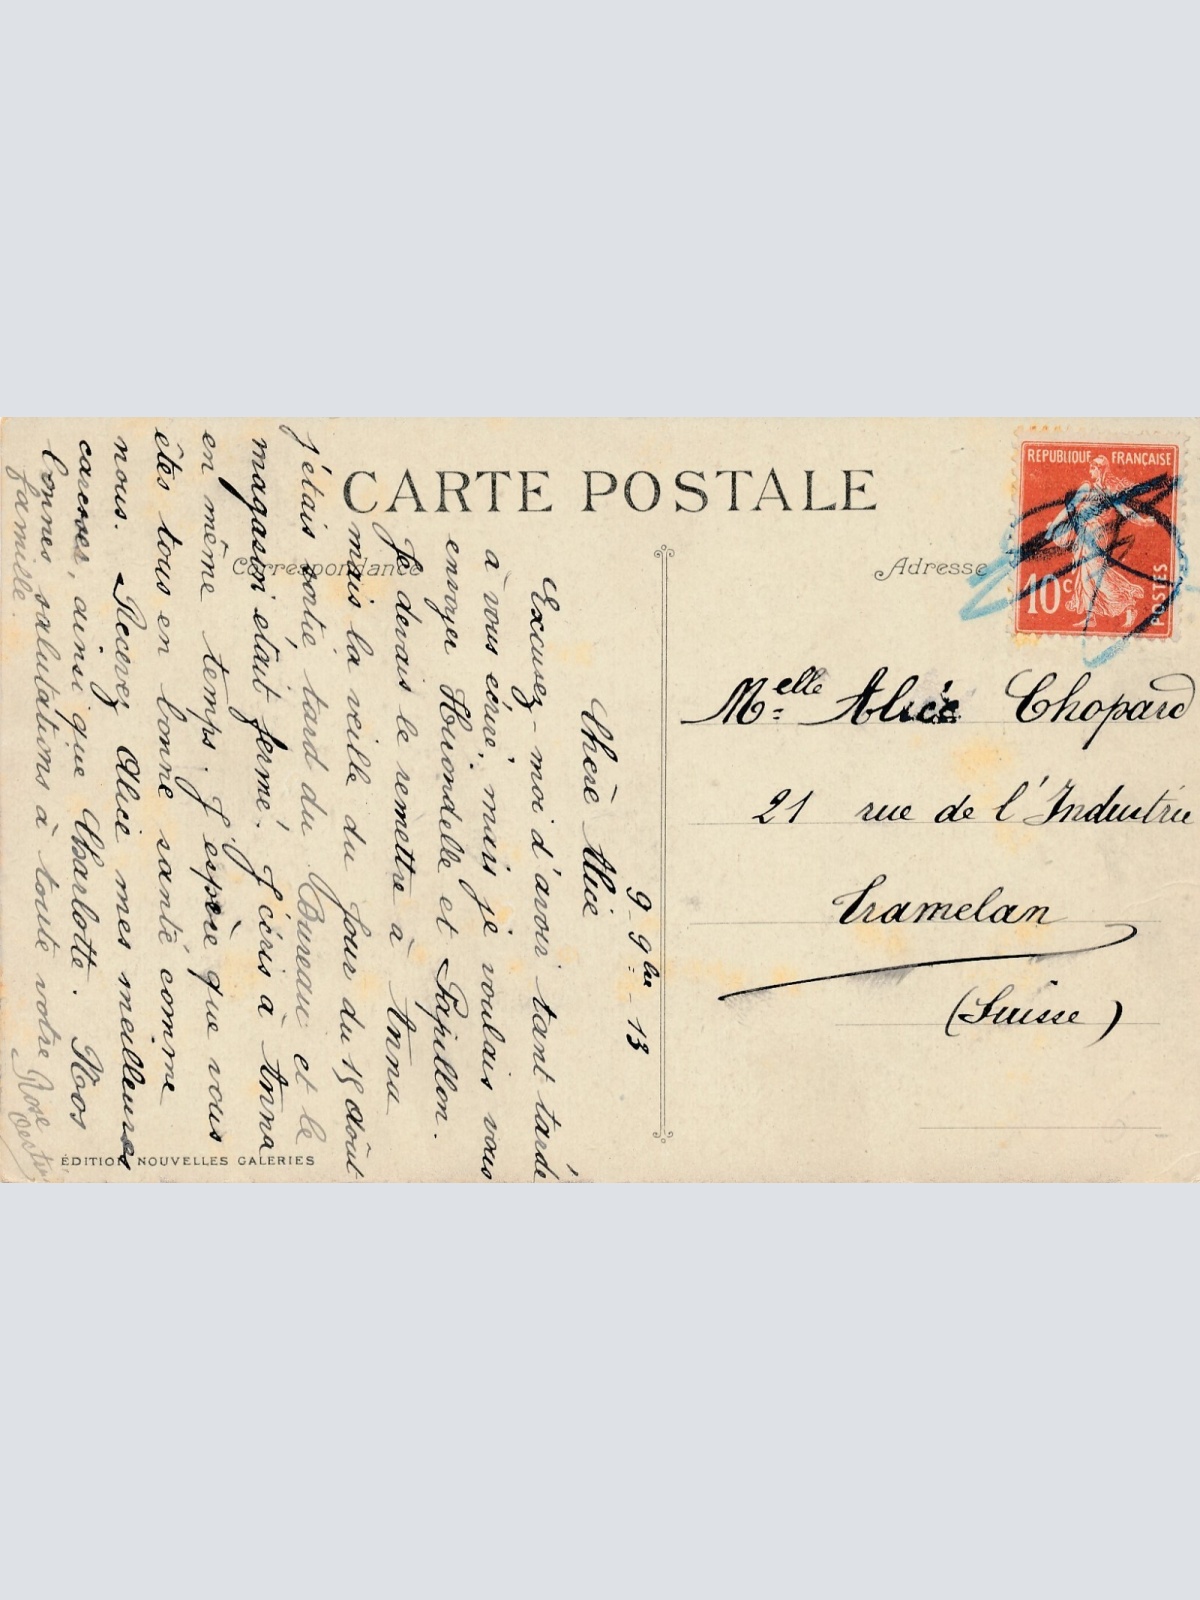 CARTE POSTALE
Correspondance
Adresse
RÉPUBLIQUE FRANÇAISE
10c
POSTES
9-9bre-13
Chère Alice
Excusez-moi d'avoir tant tardé
à vous écrire, mais je voulais vous
envoyer Hirondelle et Papillon.
Je devais le remettre à Anna
mais la veille du jour du 15 Août
j'étais sortie tard du Bureau et le
magasin était fermé. J'écris à Anna
en même temps. J'espère que vous
êtes tous en bonne santé comme
nous. Recevez Alice mes meilleures
caresses, ainsi que Charlotte. Nos
bonnes salutations à toute votre
famille.
Rose
Melle Alice Chopard
21 rue de l'Industrie
Tramelan
(Suisse)
ÉDITION NOUVELLES GALERIES